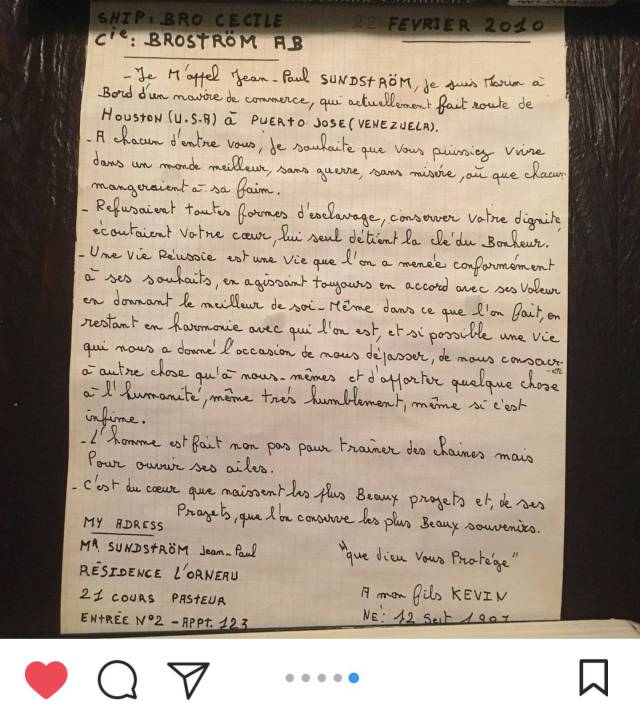 SHIP: BRO CECILE 22 FEVRIER 2010
Cie: BROSTRÖM AB
- Je M'appel Jean-Paul SUNDSTRÖM, je suis Marin à
Bord d'un navire de commerce, qui actuellement fait route de
HOUSTON (U.S.A) à PUERTO JOSE (VENEZUELA).
- A chacun d'entre vous, je souhaite que vous puissiez vivre
dans un monde meilleur, sans guerre, sans misère, où que chacun
mangeraient à sa faim.
- Refusaient toutes formes d'esclavage, conserver votre dignité,
écoutaient votre cœur, lui seul détient la clé du Bonheur.
- Une vie Réussie est une vie que l'on a menée conformément
à ses souhaits, en agissant toujours en accord avec ses valeur
en donnant le meilleur de soi-Même dans ce que l'on fait, en
restant en harmonie avec qui l'on est, et si possible une vie
qui nous a donné l'occasion de nous dépasser, de nous consacrer
à autre chose qu'à nous-mêmes et d'apporter quelque chose
à l'humanité, même très humblement, même si c'est
infime.
- L'homme est fait non pas pour traîner des chaînes mais
Pour ouvrir ses ailes.
- C'est du cœur que naissent les plus Beaux projets et, de ses
Projets, que l'on conserve les plus Beaux souvenirs.
MY ADRESS
MR. SUNDSTRÖM Jean-Paul "que dieu vous Protège"
RÉSIDENCE L'ORNEAU
21 COURS PASTEUR A mon fils KEVIN
ENTRÉE N°2 - APPT. 123 NÉ: 12 Sept